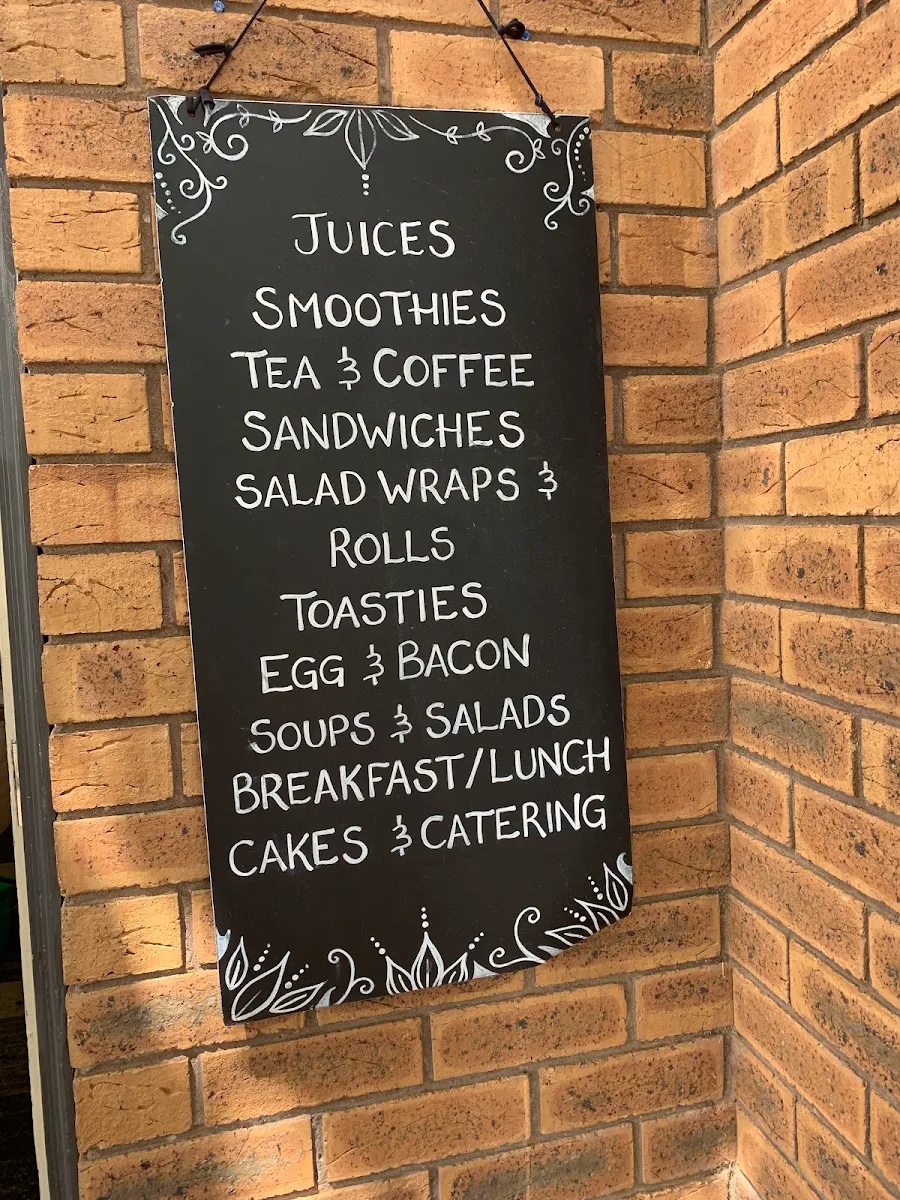 JUICES
SMOOTHIES
TEA & COFFEE
SANDWICHES
SALAD WRAPS &
ROLLS
TOASTIES
EGG & BACON
SOUPS & SALADS
BREAKFAST/LUNCH
CAKES & CATERING